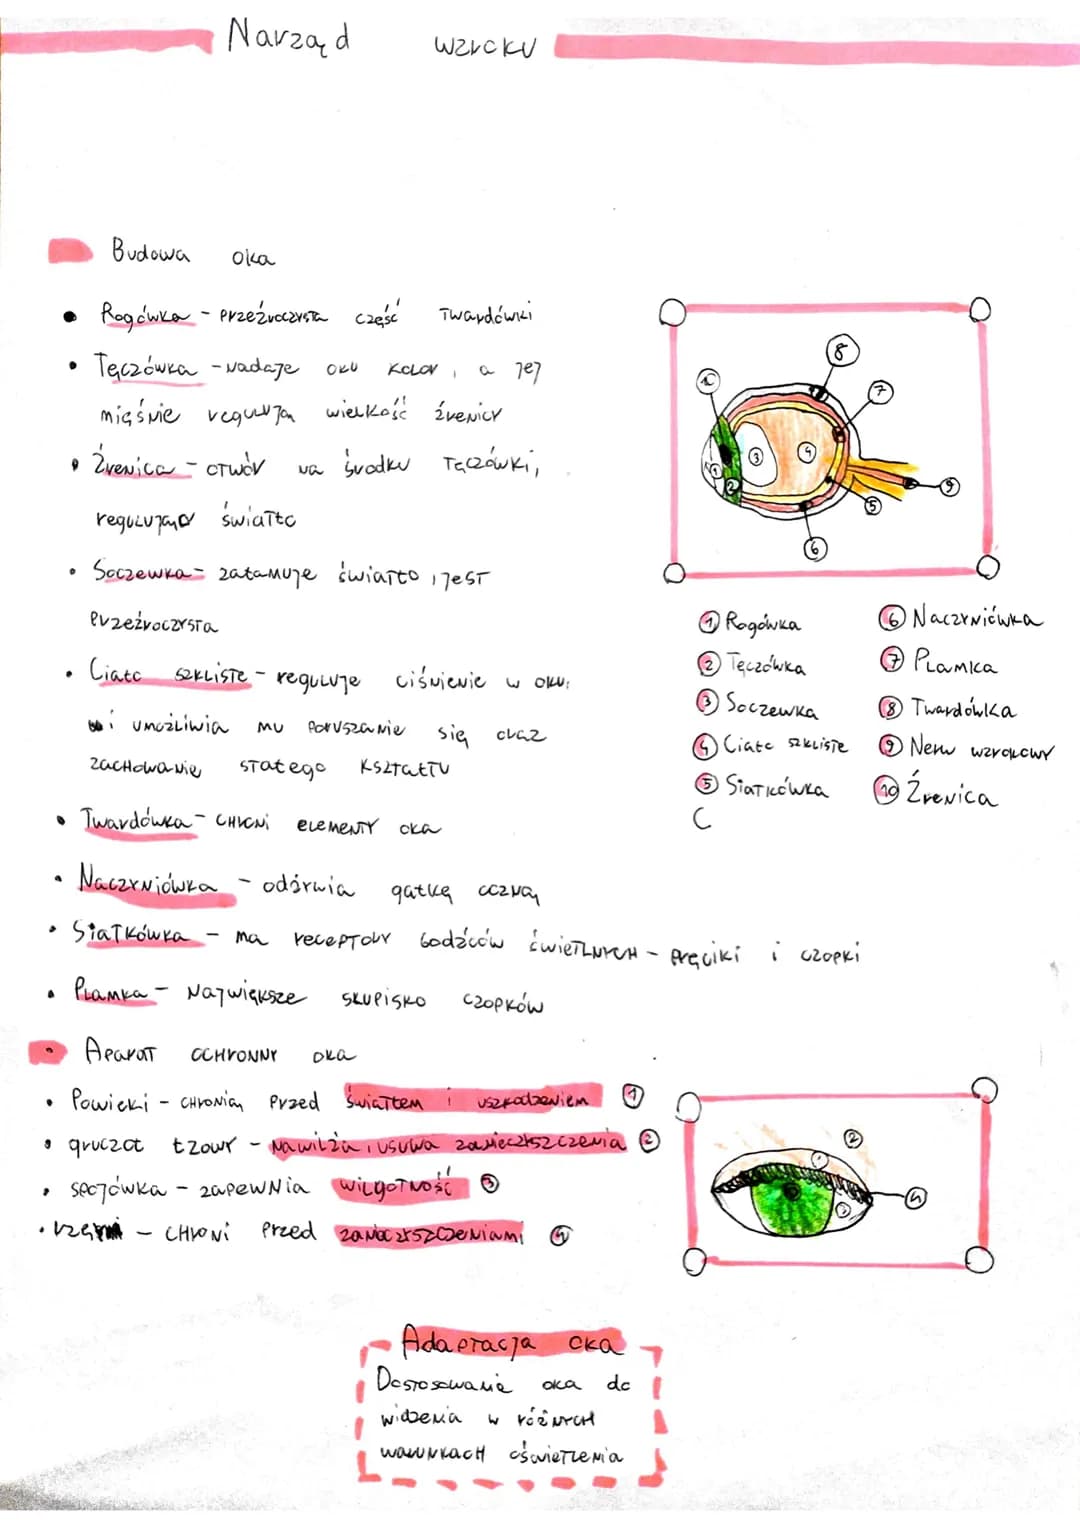 Narząd wzroku
Budowa oka
Rogówka - przeźroczysta część twardówki
Tęczówka - nadaje oku kolor, a jej
mięśnie regulują wielkość źrenicy
Źrenica - otwór na środku tęczówki,
regulująo światło
Soczewka - załamuje światło, jest
przeźroczysta
Ciało szkliste - reguluje ciśnienie w oku,
i umożliwia mu poruszanie się oraz
zachowanie stałego kształtu
Twardówka - chroni elementy oka
Naczyniówka - odżywia gałkę oczną
Siatkówka - ma receptory bodźców świetlnych - pręciki i czopki
Plamka - największe skupisko czopków
10
8
7
1
2
3
4
9
5
6
① Rogówka
② Tęczówka
③ Soczewka
④ Ciało szkliste
⑤ Siatkówka
C
⑥ Naczyniówka
⑦ Plamka
⑧ Twardówka
⑨ Nerw wzrokowy
⑩ Źrenica
Aparat ochronny oka
Powieki - chronią przed światłem i uszkodzeniem ①
gruczoł łzowy - nawilża, usuwa zanieczyszczenia ②
spojówka - zapewnia wilgotność ③
- chroni przed zanieczyszczeniami ④
2
1
3
4
Adaptacja oka
Dostosowanie oka do
widzenia w różnych
warunkach oświetlenia